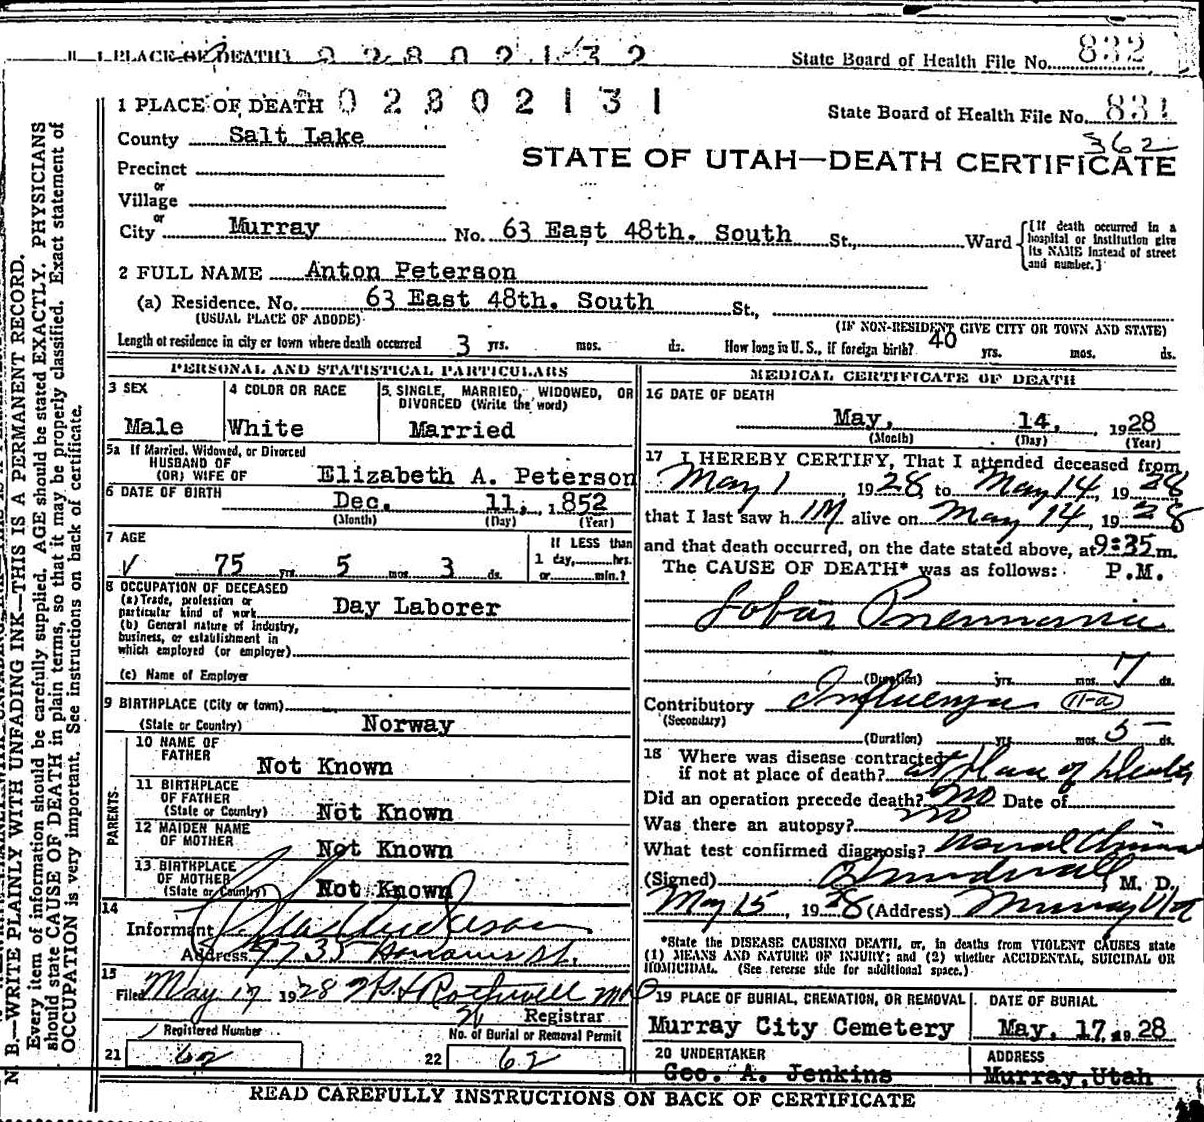 1 PLACE OF DEATH 0 2 8 0 2 1 3 2
State Board of Health File No. 832
1 PLACE OF DEATH 0 2 8 0 2 1 3 1
State Board of Health File No. 831
362
County Salt Lake
STATE OF UTAH—DEATH CERTIFICATE
Precinct
or
Village
or
City Murray No. 63 East 48th. South St., Ward
[If death occurred in a hospital or institution give its NAME instead of street and number.]
2 FULL NAME Anton Peterson
(a) Residence. No. 63 East 48th. South St.,
(USUAL PLACE OF ABODE)
(IF NON-RESIDENT GIVE CITY OR TOWN AND STATE)
Length of residence in city or town where death occurred 3 yrs. mos. ds. How long in U. S., if foreign birth? 40 yrs. mos. ds.
PERSONAL AND STATISTICAL PARTICULARS
3 SEX
Male
4 COLOR OR RACE
White
5 SINGLE, MARRIED, WIDOWED, OR
DIVORCED (Write the word)
Married
5a If Married, Widowed, or Divorced
HUSBAND OF
(OR) WIFE OF Elizabeth A. Peterson
6 DATE OF BIRTH Dec. 11, 1852
(Month) (Day) (Year)
7 AGE
75 yrs. 5 mos. 3 ds.
If LESS than
1 day, hrs.
or min.?
8 OCCUPATION OF DECEASED
(a) Trade, profession or
particular kind of work Day Laborer
(b) General nature of industry,
business, or establishment in
which employed (or employer)
(c) Name of Employer
9 BIRTHPLACE (City or town)
(State or Country) Norway
PARENTS
10 NAME OF
FATHER Not Known
11 BIRTHPLACE
OF FATHER
(State or Country) Not Known
12 MAIDEN NAME
OF MOTHER Not Known
13 BIRTHPLACE
OF MOTHER
(State or Country) Not Known
14
Informant
Address
15
Filed May 17 1928
Registrar
Registered Number
21 62
No. of Burial or Removal Permit
22 62
MEDICAL CERTIFICATE OF DEATH
16 DATE OF DEATH
May, 14, 1928
(Month) (Day) (Year)
17 I HEREBY CERTIFY, That I attended deceased from
May 1 1928, to May 14, 1928
that I last saw h im alive on May 14, 1928
and that death occurred, on the date stated above, at 9:35 m.
The CAUSE OF DEATH* was as follows: P.M.
Lobar Pneumonia
(Duration) yrs. mos. 7 ds.
Contributory Influenza 11-a
(Secondary)
(Duration) yrs. mos. 5 ds.
18 Where was disease contracted
if not at place of death? at place of death
Did an operation precede death? no Date of
Was there an autopsy? no
What test confirmed diagnosis?
(Signed) M. D.
May 15, 1928 (Address) Murray Utah
*State the DISEASE CAUSING DEATH, or, in deaths from VIOLENT CAUSES state
(1) MEANS AND NATURE OF INJURY; and (2) whether ACCIDENTAL, SUICIDAL OR
HOMICIDAL. (See reverse side for additional space.)
19 PLACE OF BURIAL, CREMATION, OR REMOVAL
Murray City Cemetery
DATE OF BURIAL
May, 17, 1928
20 UNDERTAKER
Geo. A. Jenkins
ADDRESS
Murray, Utah
READ CAREFULLY INSTRUCTIONS ON BACK OF CERTIFICATE
N. B.—WRITE PLAINLY WITH UNFADING INK—THIS IS A PERMANENT RECORD.
Every item of information should be carefully supplied. AGE should be stated EXACTLY. PHYSICIANS
should state CAUSE OF DEATH in plain terms, so that it may be properly classified. Exact statement of
OCCUPATION is very important. See instructions on back of certificate.